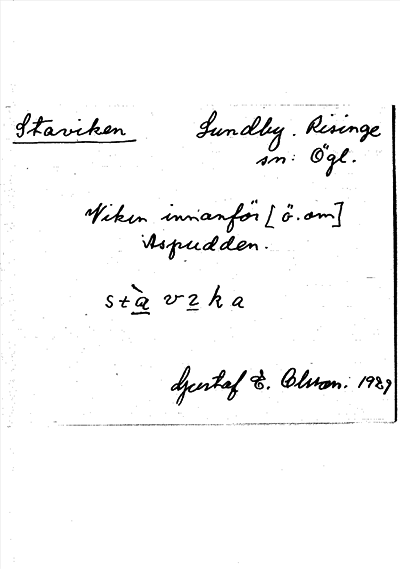 Staviken Sundby. Risinge
sn: Ögl.
Viken innanför [ö. om]
Aspudden.
stà vzka
Gustaf E. Olsson. 1929